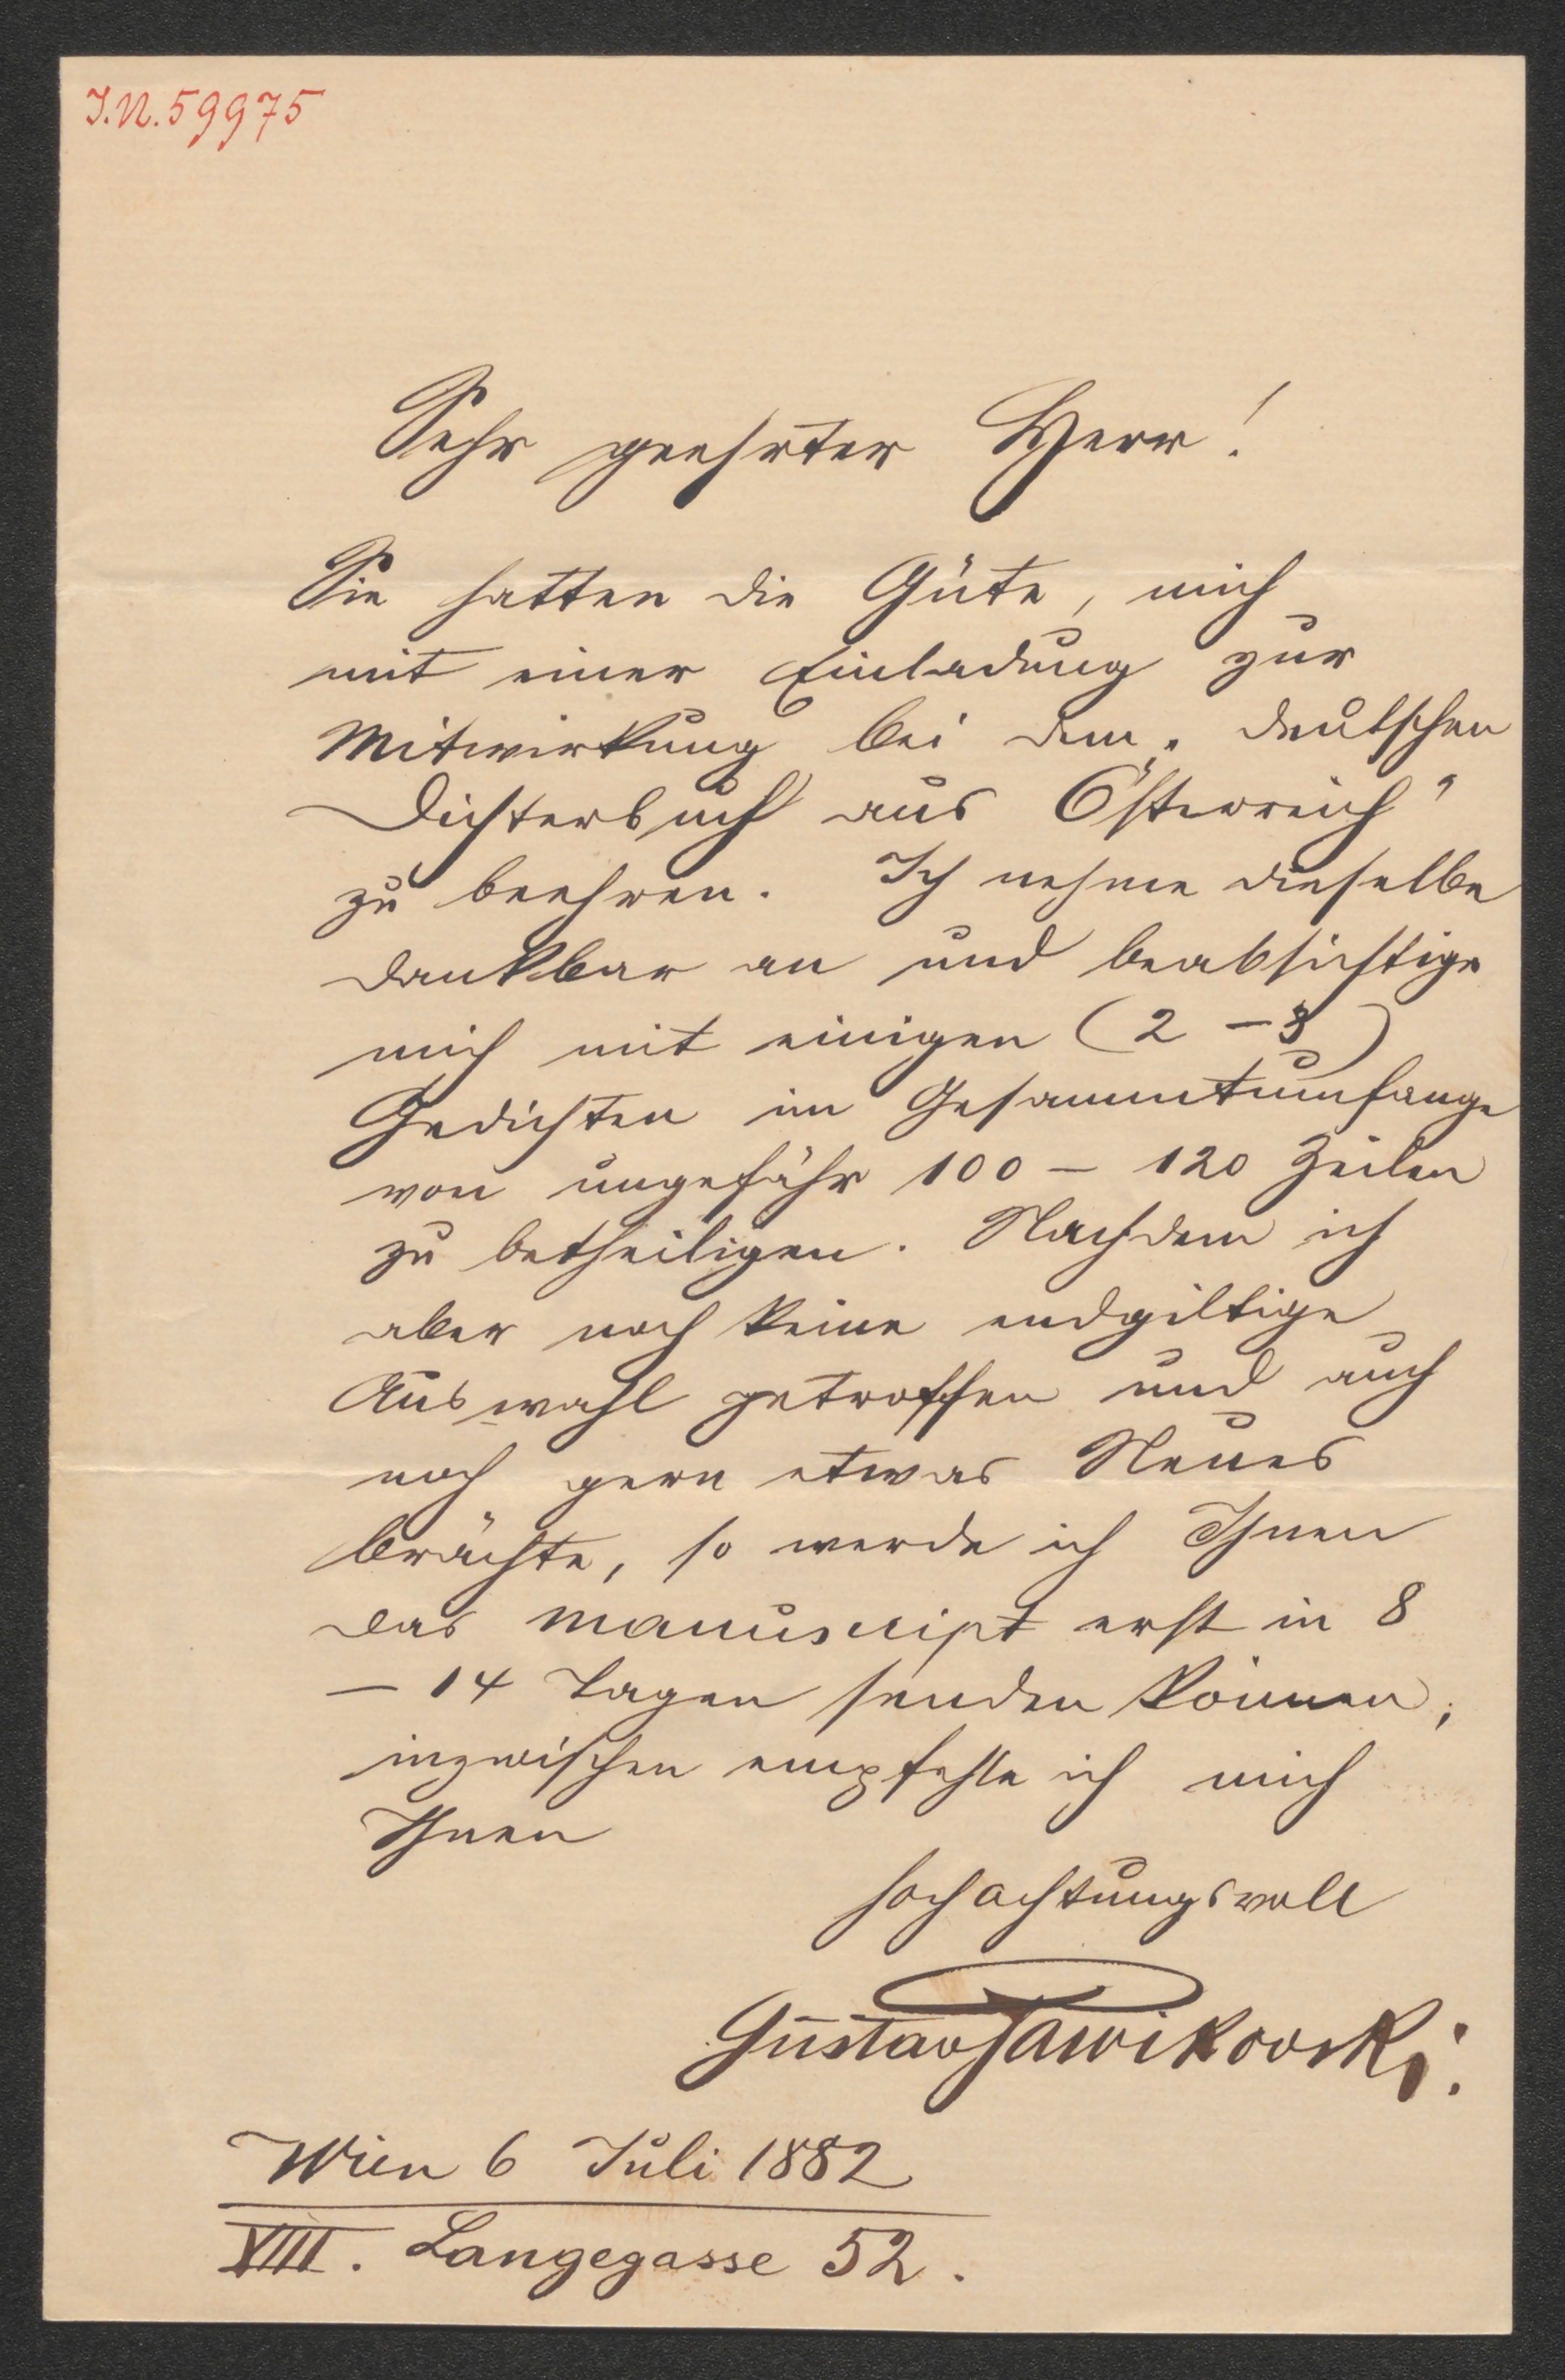 I.N. 59975
Sehr geehrter Herr!
Sie hatten die Güte, mich
mit einer Einladung zur
Mitwirkung bei dem „deutschen
Dichterbuch aus Österreich“
zu beehren. Ich nehme dieselbe
dankbar an und beabsichtige
mich mit einigen (2 – 3)
Gedichten im Gesammtumfange
von ungefähr 100 – 120 Zeilen
zu betheiligen. Nachdem ich
aber noch keine endgiltige
Auswahl getroffen und auch
noch gern etwas Neues
brächte, so werde ich Ihnen
das Manuscript erst in 8
– 14 Tagen senden können;
inzwischen empfehle ich mich
Ihnen
hochachtungsvoll
Gustav Pawikovski.
Wien 6 Juli 1882
VIII. Langegasse 52.